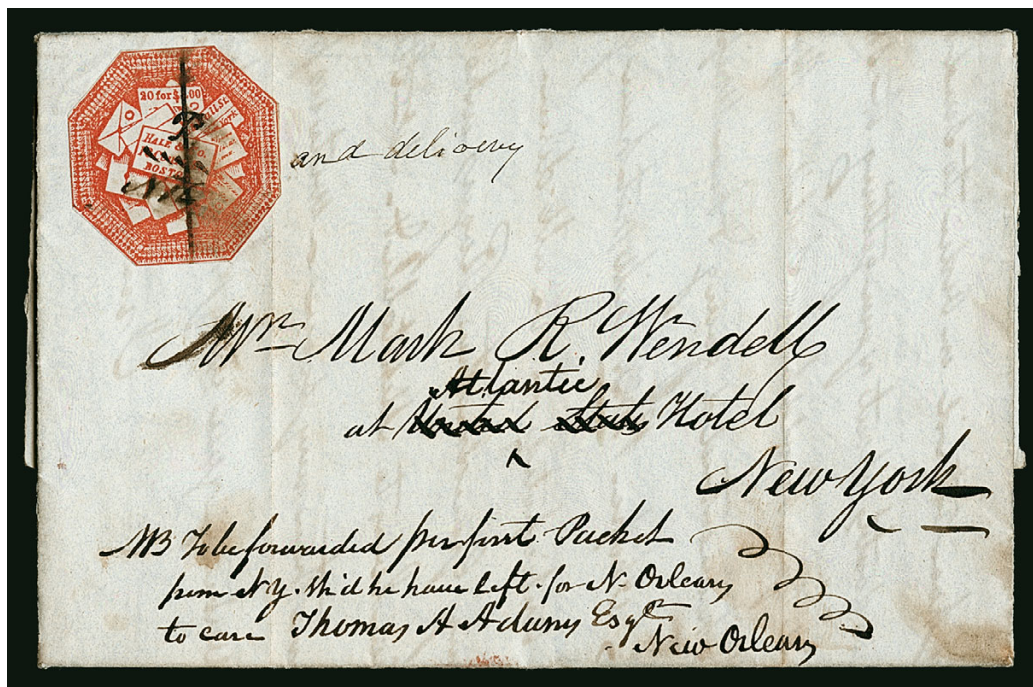 20 for $1.00
HALE & CO.
BOSTON
and delivery
Mr Mark R. Wendell
Atlantic
at United States Hotel
New York
NB To be forwarded per first Packet
from N Y. sh'd he have left for N. Orleans
to care Thomas A Adams Esqr
New Orleans